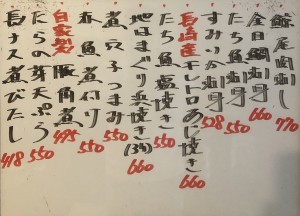 鯨尾肉刺し 770
金目鯛刺身 660
たち魚刺身 550
すみいか刺身 528
長崎産トレトロあじ焼き 660
たち魚塩焼き 550
地はまぐり浜焼き(3ヶ) 660
煮穴子つまみ 550
赤魚煮付け 550
自家製豚角煮 495
たらの芽天ぷら 550
長ナス煮びたし 418